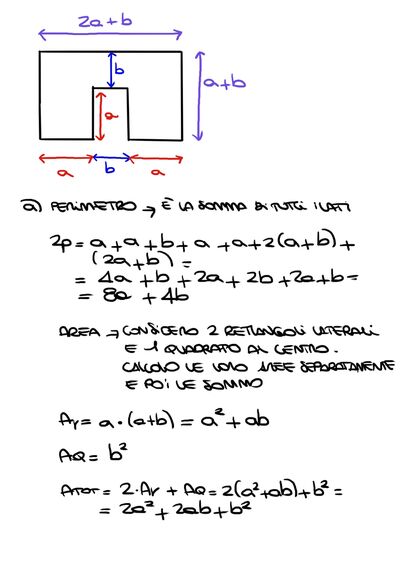 2a+b
b
a+b
a
a
b
a
a) PERIMETRO → È LA SOMMA DI TUTTI I LATI
2p = a+a+b+a+a+2(a+b)+
(2a+b) =
= 4a+b+2a+2b+2a+b=
= 8a +4b
AREA → CONSIDERO 2 RETTANGOLI LATERALI
E 1 QUADRATO AL CENTRO.
CALCOLO LE LORO AREE SEPARATAMENTE
E POI LE SOMMO
Ar= a·(a+b) = a²+ab
AQ= b²
ATOT= 2·Ar + AQ=2(a²+ab)+b²=
= 2a²+2ab+b²